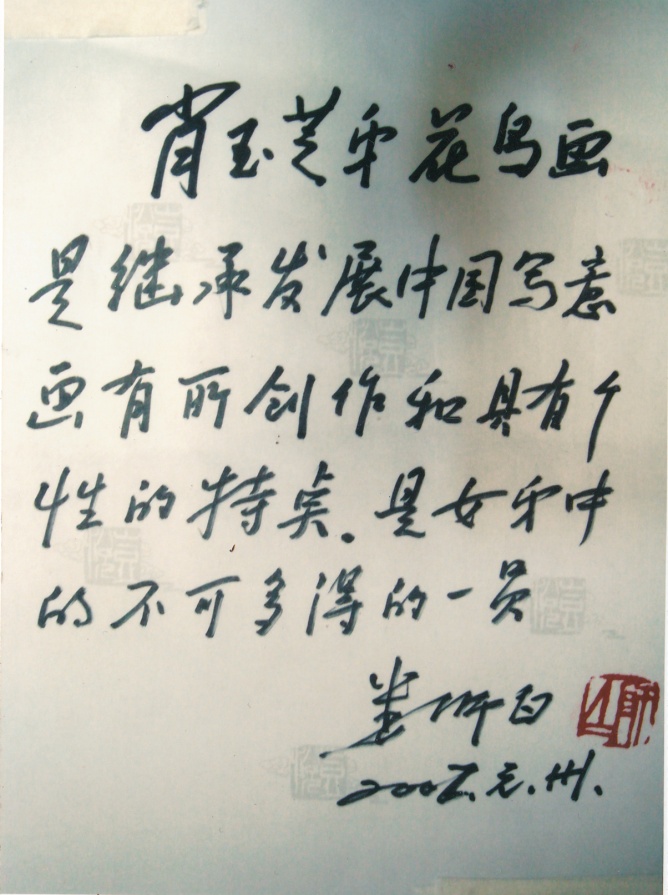 肖玉芝年花鸟画
是继承发展中国写意
画有所创作和具有个
性的特点。是女年中
的不可多得的一员
娄师白
2005.元.卅.
师白